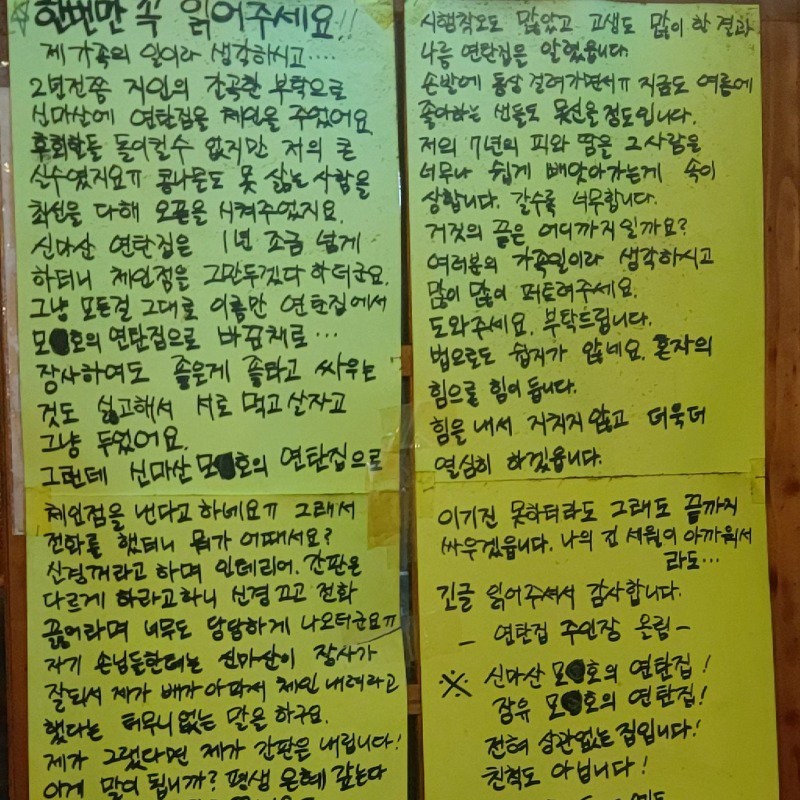 ☆한번만 꼭 읽어주세요!!
제 가족의 일이라 생각하시고....
2년전쯤 지인의 간곡한 부탁으로
신마산에 연탄집을 체인을 주었어요
후회한들 돌이킬수 없지만 저의 큰
실수였지요ㅠ 콩나물도 못 삶는 사람을
최선을 다해 오픈을 시켜주었지요.
신마산 연탄집은 1년 조금 넘게
하더니 체인점을 그만두겠다 하더군요.
그냥 모든걸 그대로 이름만 연탄집에서
모●호의 연탄집으로 바꿈채로...
장사하여도 좋은게 좋타고 싸우는
것도 싫고해서 서로 먹고살자고
그냥 두었어요.
그런데 신마산 모●호의 연탄집으로
체인점을 낸다고 하네요ㅠ 그래서
전화를 했더니 뭐가 어때서요?
신경꺼라고 하며 인테리어. 간판은
다르게 하라고하니 신경끄고 전화
끊어라며 너무도 당당하게 나오더군요ㅠ
자기 손님들한테는 신마산이 장사가
잘되서 제가 배가아파서 체인 내려라고
했다는 터무니없는 말을 하구요.
제가 그랬다면 제가 간판을 내립니다!
이게 말이 됩니까? 평생 은혜 갚는다
시행착오도 많았고 고생도 많이 한 결과
나름 연탄집을 알렸습니다.
손발에 동상 걸려가면서ㅠ 지금도 여름에
좋아하는 샌들도 못신을 정도입니다.
저의 7년의 피와 땀을 그사람은
너무나 쉽게 빼앗아가는게 속이
상합니다. 갈수록 너무합니다.
거짓의 끝은 어디까지일까요?
여러분의 가족일이라 생각하시고
많이 많이 퍼트려주세요.
도와주세요. 부탁드립니다.
법으로도 쉽지가 않네요. 혼자의
힘으로 힘이 듭니다.
힘을 내서 지치지않고 더욱더
열심히 하겠습니다.
이기진 못하더라도 그래도 끝까지
싸우겠습니다. 나의 긴 세월이 아까워서
라도...
긴글 읽어주셔서 감사합니다.
- 연탄집 주인장 올림 -
※ 신마산 모●호의 연탄집!
장유 모●호의 연탄집!
전혀 상관없는 집입니다!
친척도 아닙니다!